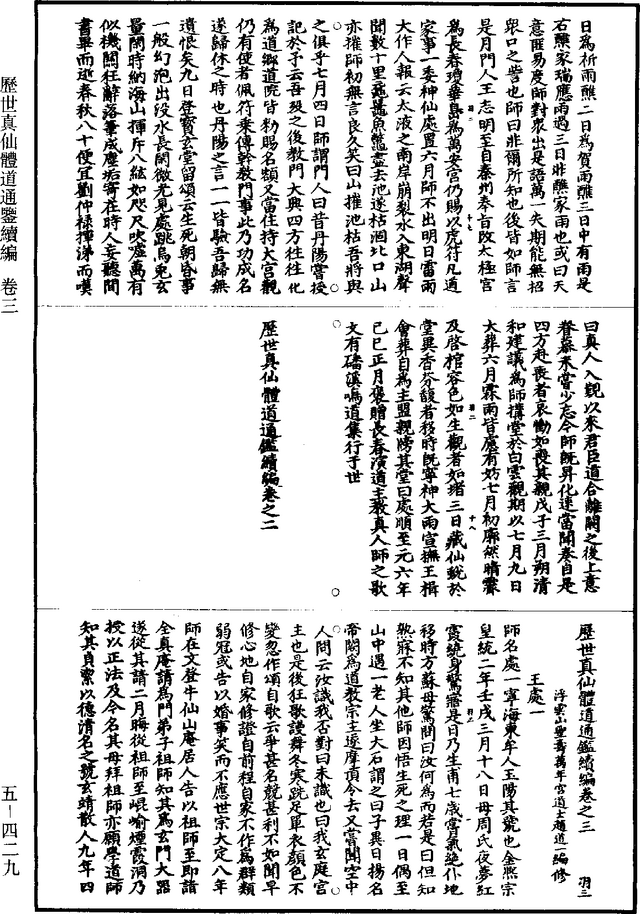 歷世真仙體道通鑒續編　卷三
五—四二九
日為祈雨醮二日為賀雨醮三日中有雨是
右醮家瑞應雨過三日非醮家雨也或曰天
意匪易度師對衆出是語萬一失期能無招
衆口之訾也師曰非爾所知也後皆如師言
是月門人王志明至自秦州奉旨改太極宮
為長春瓊華島為萬安宮仍賜以虎符凡道
家事一委神仙處置六月師不出明日雷雨
大作人報云太液之南岸崩裂水入東湖聲
聞數十里黿鼉魚鱉盡去池遂枯涸北口山
亦摧師初無言良久笑曰山摧池枯吾將與
之俱乎七月四日師謂門人曰昔丹陽嘗授
記於予云吾歿之後教門大興四方往往化
為道鄉道院皆勑賜名額又當住持大宮觀
仍有使者佩符乘傳幹教門事此乃功成名
遂歸休之時也丹陽之言一一皆驗吾歸無
遺恨矣九日登寶玄堂留頌云生死朝昏事
一般幻泡出沒水長閑微光見處跳烏兔玄
量開時納海山揮斥八紘如咫尺吹噓萬有
似機關狂辭落筆成塵垢寄在時人妄聽間
書畢而逝春秋八十便宜劉仲祿揮涕而嘆
曰真人入覲以來君臣道合離闕之後上意
眷慕未嘗少忘今師既昇化速當聞奏自是
四方赴喪者哀慟如喪其親戊子三月朔清
和建議為師構堂於白雲觀期以七月九日
大葬六月霖雨皆慮有妨七月初廓然晴霽
及啓棺容色如生觀者如堵三日藏仙蛻於
堂異香芬馥者移時既寧神大雨宣撫王楫
會葬自為主盟親牓其堂曰處順至元六年
己巳正月褒贈長春演道主教真人師之歌
文有磻溪鳴道集行于世
歷世真仙體道通鑑續編卷之二
歷世真仙體道通鑑續編卷之三　羽三
浮雲山聖壽萬年宮道士趙道一編修
王處一
師名處一寧海東牟人玉陽其號也金熙宗
皇統二年壬戌三月十八日母周氏夜夢紅
霞繞身驚寤是日乃生甫七歲嘗氣絶仆地
移時方蘇母驚問曰汝何為而若是曰但知
熟寐不知其他師因悟生死之理一日偶至
山中遇一老人坐大石謂之曰子異日揚名
帝闕為道教宗主遂摩頂令去又嘗聞空中
人問云汝識我否對曰未識也曰我玄庭宮
主也是後狂歌謾舞冬寒跣足單衣顔色不
變忽作頌自歌云爭甚名競甚利不如聞早
修心地自家修證自前程自家不作為群類
弱冠或告以婚事笑而不應世宗大定八年
師在文登牛仙山庵居人告以祖師至即詣
全真庵請為門弟子祖師知其為玄門大器
遂從其請二月晦從祖師至崐喻煙霞洞乃
授以正法及令名其母拜祖師亦願學道師
知其貞潔以德清名之號玄靖散人九年四